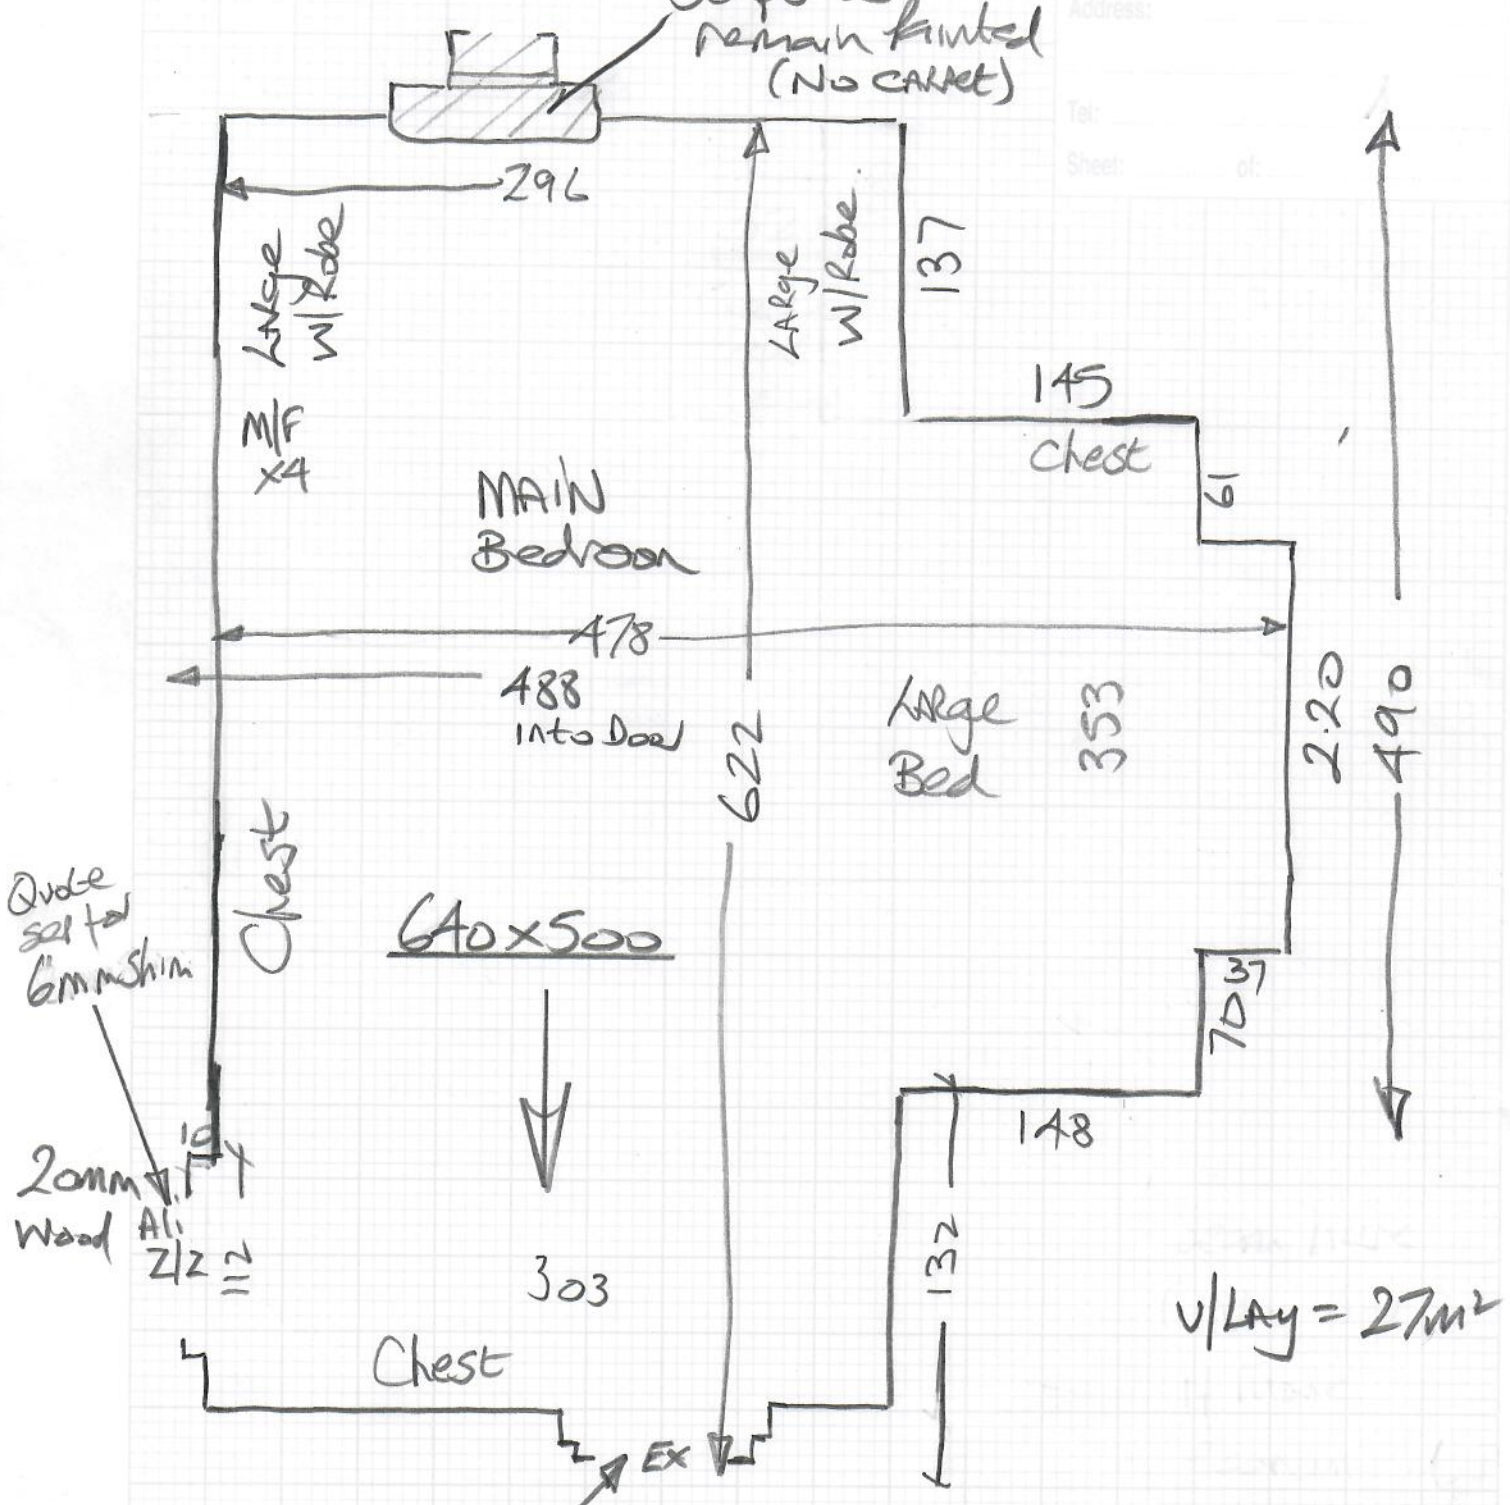 Address:
remain Painted
(NO CARPET)
Tel:
Sheet: of:
296
LARge
W/Robe
LARge
W/Robe
137
M/F
x4
145
Chest
61
MAIN
Bedroom
478
488
into Door
622
LARge
Bed
353
2.20
490
Chest
Quote
sep for
6mm Shim
640x500
37
70
148
10
20mm
Wood
Ali
Z/Z
112
303
132
U/LAy = 27m²
Chest
EX